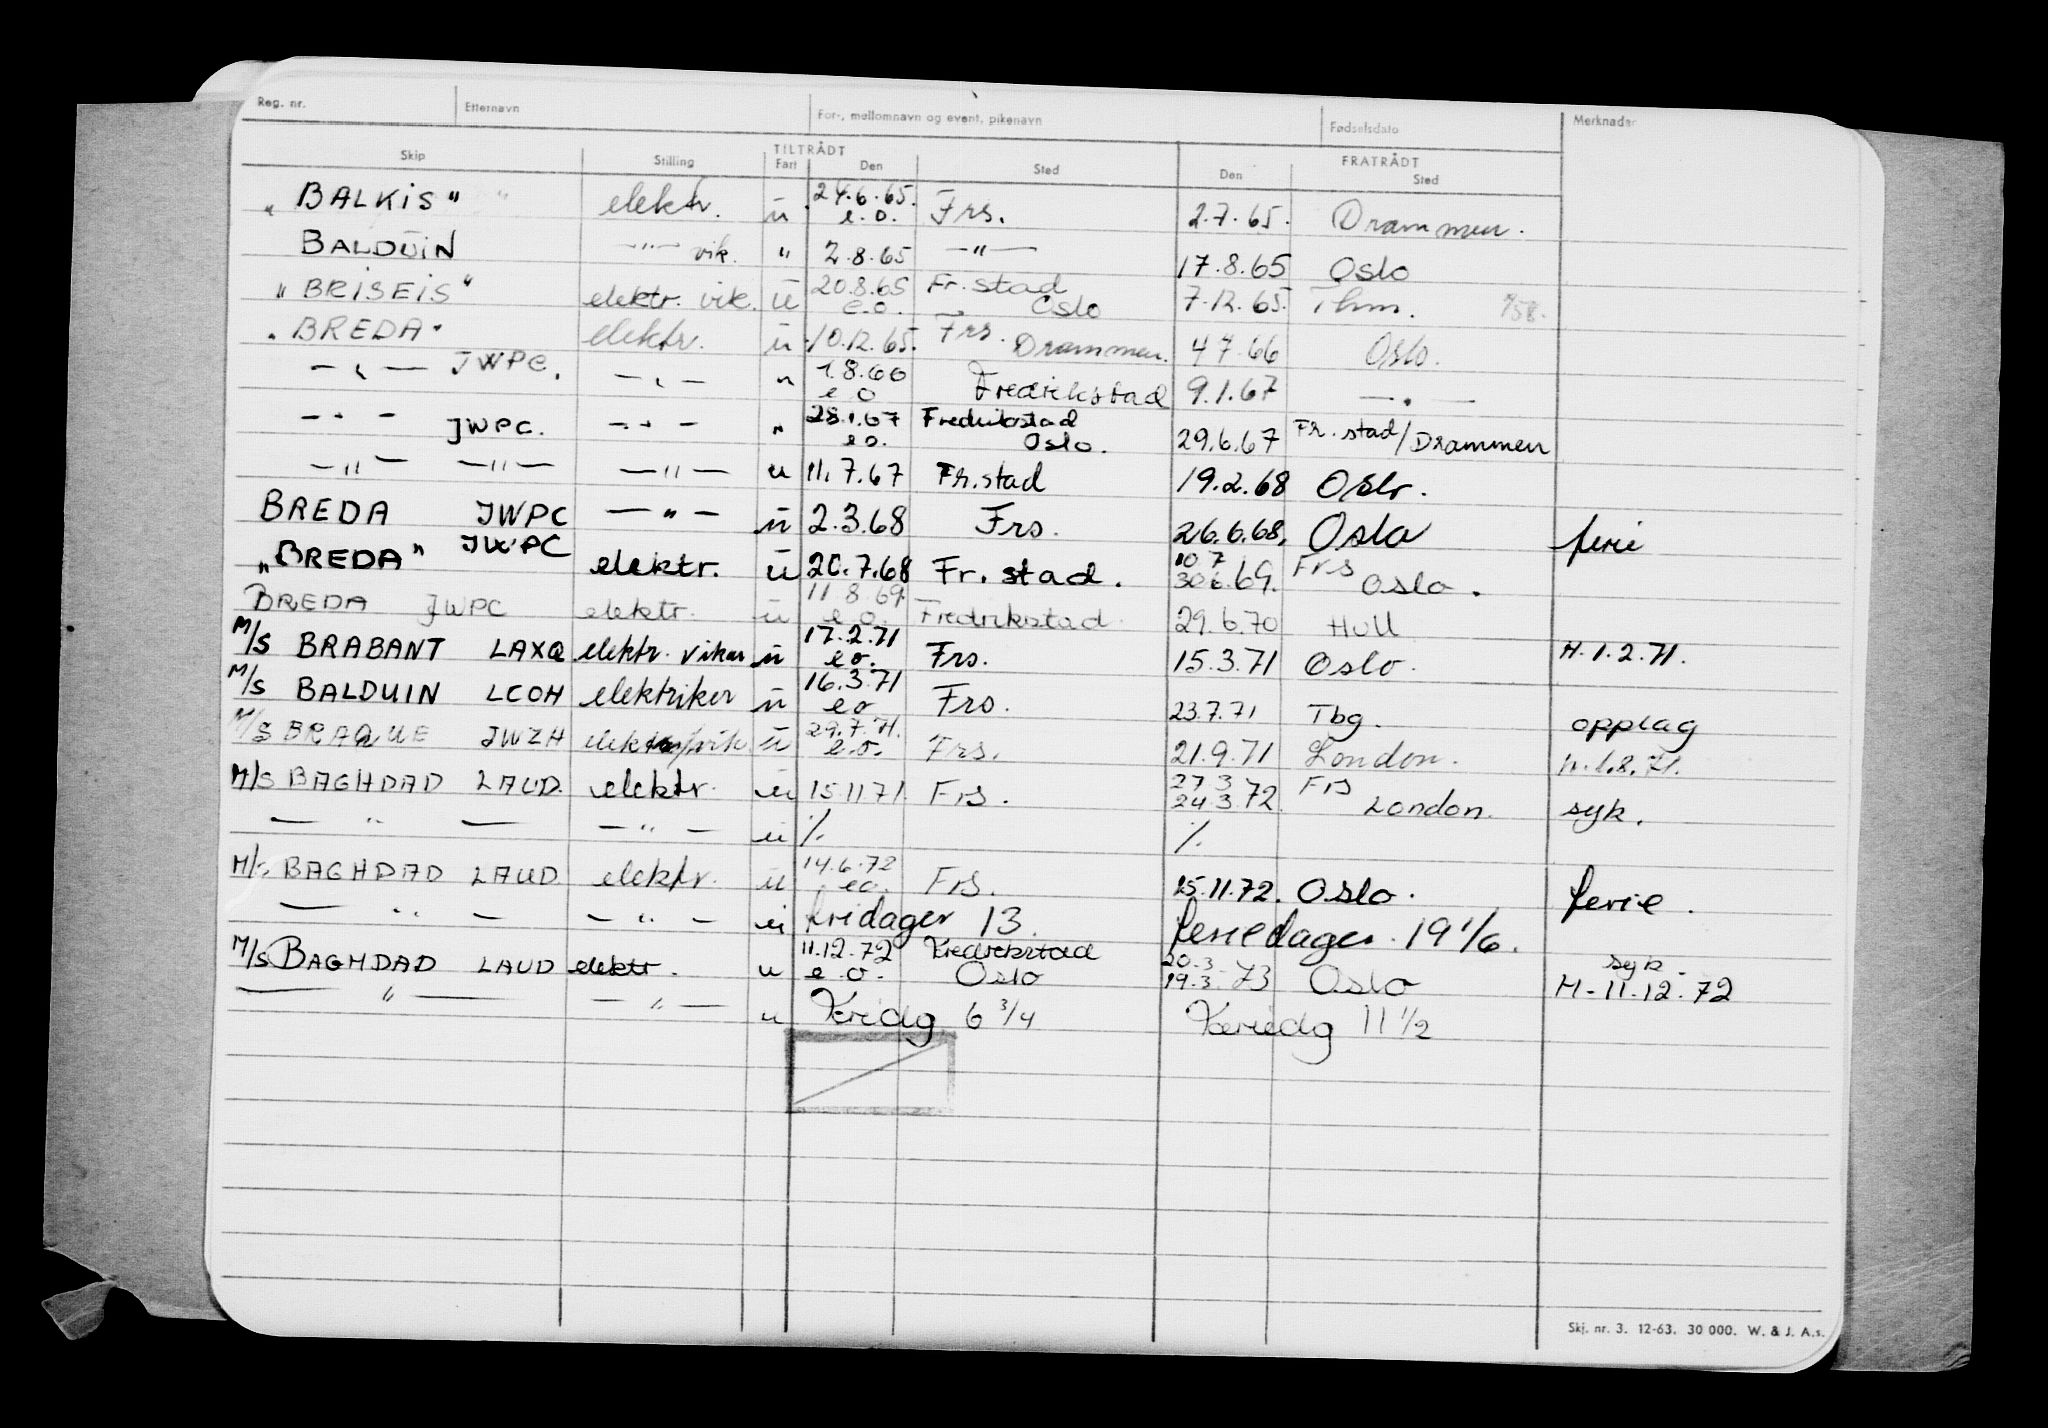 Reg. nr. Etternavn For-, mellomnavn og event. pikenavn Fødselsdato Merknader
TILTRÅDT FRATRÅDT
Skip Stilling Fart Den Sted Den Sted
"BALKIS" elektr. u 24.6.65. e.o. Frs. 2.7.65. Drammen.
BALDUIN —"— vik. " 2.8.65 —"— 17.8.65 Oslo
"BRISEIS" elektr. vik. u 20.8.65 e.o. Fr.stad Oslo 7.12.65. Thm. 758.
"BREDA" elektr. u 10.12.65. Frs. Drammen. 4.7.66 Oslo.
—"— JWPC. —"— " 1.8.66 e o Fredrikstad 9.1.67 —"—
—"— JWPC. —"— " 28.1.67 e o. Fredrikstad Oslo. 29.6.67 Fr.stad/Drammen
—"— —"— —"— u 11.7.67 Fr.stad 19.2.68 Oslo.
BREDA JWPC —"— u 2.3.68 Frs. 26.6.68. Oslo ferie
"BREDA" JWPC elektr. u 20.7.68 Fr.stad. 10 7 30.6.69. Frs Oslo.
BREDA JWPC elektr. u 11.8.69. e o. Fredrikstad. 29.6.70 Hull
M/S BRABANT LAXQ elektr. vikar u 17.2.71 e o. Frs. 15.3.71 Oslo. H.1.2.71.
M/S BALDUIN LCOH elektriker u 16.3.71 e o Frs. 23.7.71 Tbg. opplag
M/S BRAQUE JWZH elektr/vik. u 29.7.71. e.o. Frs. 21.9.71 London. H.1.8.71.
M/S BAGHDAD LAUD. elektr. u 15.11.71. Frs. 27 3 24.3.72. Frs London. syk.
—"— —"— u %. %.
M/S BAGHDAD LAUD elektr. u 14.6.72 e o. Frs. 15.11.72. Oslo. ferie.
—"— —"— u fridager 13. feriedager. 19 1/6.
M/S BAGHDAD LAUD elektr. u 11.12.72 e o. Fredrikstad Oslo 20.3 19.3.73 Oslo syk. M-11.12.72
—"— —"— u Fridg 6 3/4 Feriedg 11 1/2
Skj. nr. 3. 12-63. 30 000. W. & J. A.s.